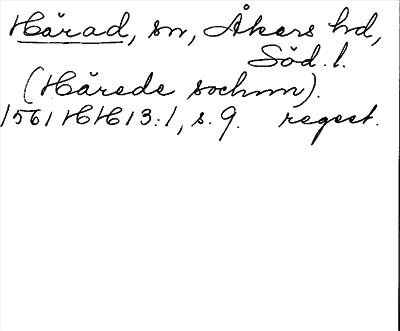 Härad, sn, Åkers hd,
Söd. l.
(Härede sochnn).
1561 HH 13:1, s. 9. regest.